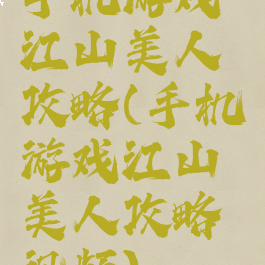 手机游戏
江山美人
攻略(手机
游戏江山
美人攻略
视频)